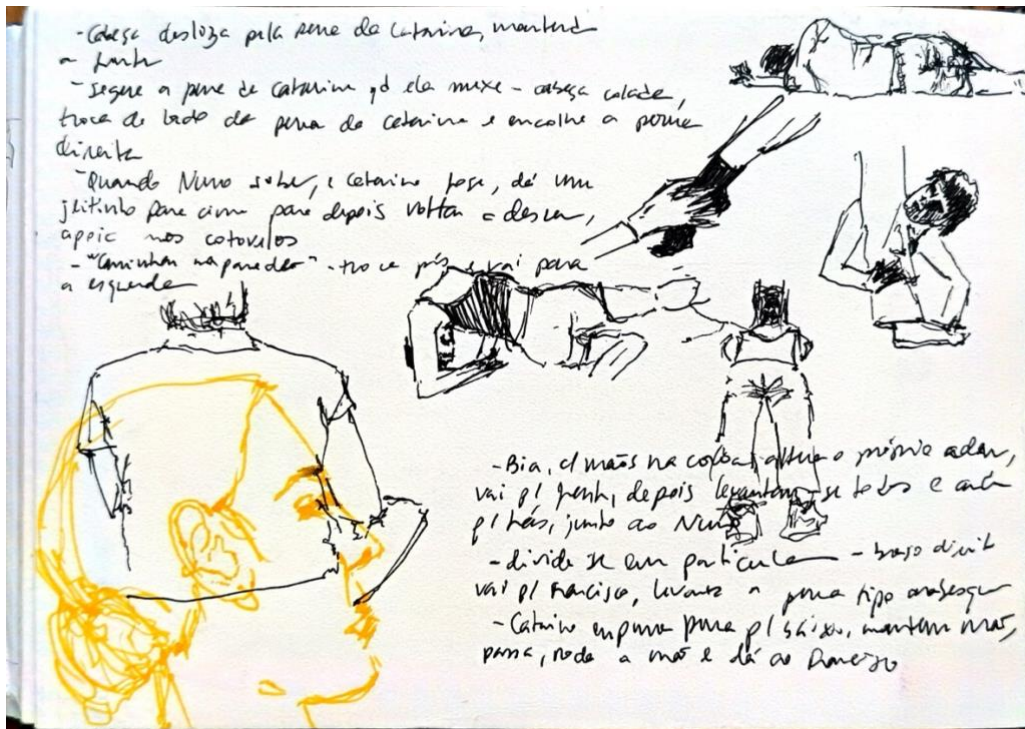 - Cabeça desliza pela perna da Catarina, mantend
a
- segue a perna de Catarina qd ela mexe - cabeça colada,
troca de lado da perna da Catarina e encolhe a perna
direita
- Quando Nuno sobe, e Catarina desce, dá um
jeitinho para cima para depois voltar a descer,
apoia nos cotovelos
- "Caminhar na parede" - troca pés e vai para
a esquerda
- Bia, c/ mãs na altura o próprio andar,
vai p/ frente, depois levantam-se todos e anda
p/ trás, junto ao Nuno
- divide se em particula - braço direito
vai p/ Francisco, levanta a perna tipo arabesque
- Catarina empurra perna p/ baixo, mantem mão,
passa, roda a mão e dá ao Francisco